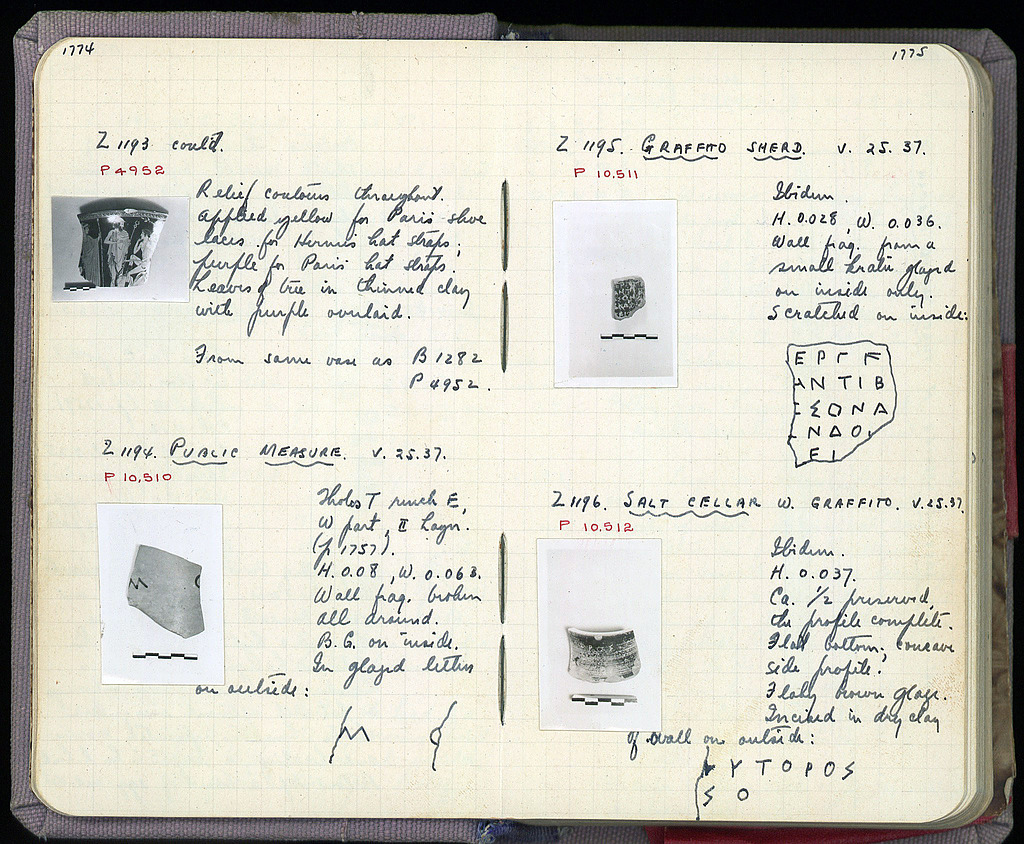 1774
Z 1193 cont'd.
P 4952
Relief contours throughout.
Applied yellow for Paris' shoe
laces, for Hermes' hat straps;
purple for Paris' hat straps.
Leaves of tree in thinned clay
with purple overlaid.
From same vase as B 1282
P 4952.
Z 1194. PUBLIC MEASURE. V. 25.37.
P 10,510
Tholos T rench E,
W part, II Layer.
(p 1757).
H. 0.08, W. 0.063.
Wall frag. broken
all around.
B. G. on inside.
In glazed letters
on outside:
1775
Z 1195. GRAFFITO SHERD. V. 25. 37.
P 10,511
Ibidem.
H. 0.028, W. 0.036.
Wall frag. from a
small krater glazed
on inside only.
Scratched on inside:
Ε Ρ Γ F
Α Ν Τ Ι Β
Σ Ο Ν Α
Ν Δ Ο
Ε Ι
Z 1196. SALT CELLAR W. GRAFFITO. V. 25.37
P 10,512
Ibidem.
H. 0.037.
Ca. 1/2 preserved,
the profile complete.
Flat bottom; concave
side profile.
Flaky brown glaze.
Incised in dry clay
of wall on outside:
Υ Τ Ο Ρ Ο S
S Ο